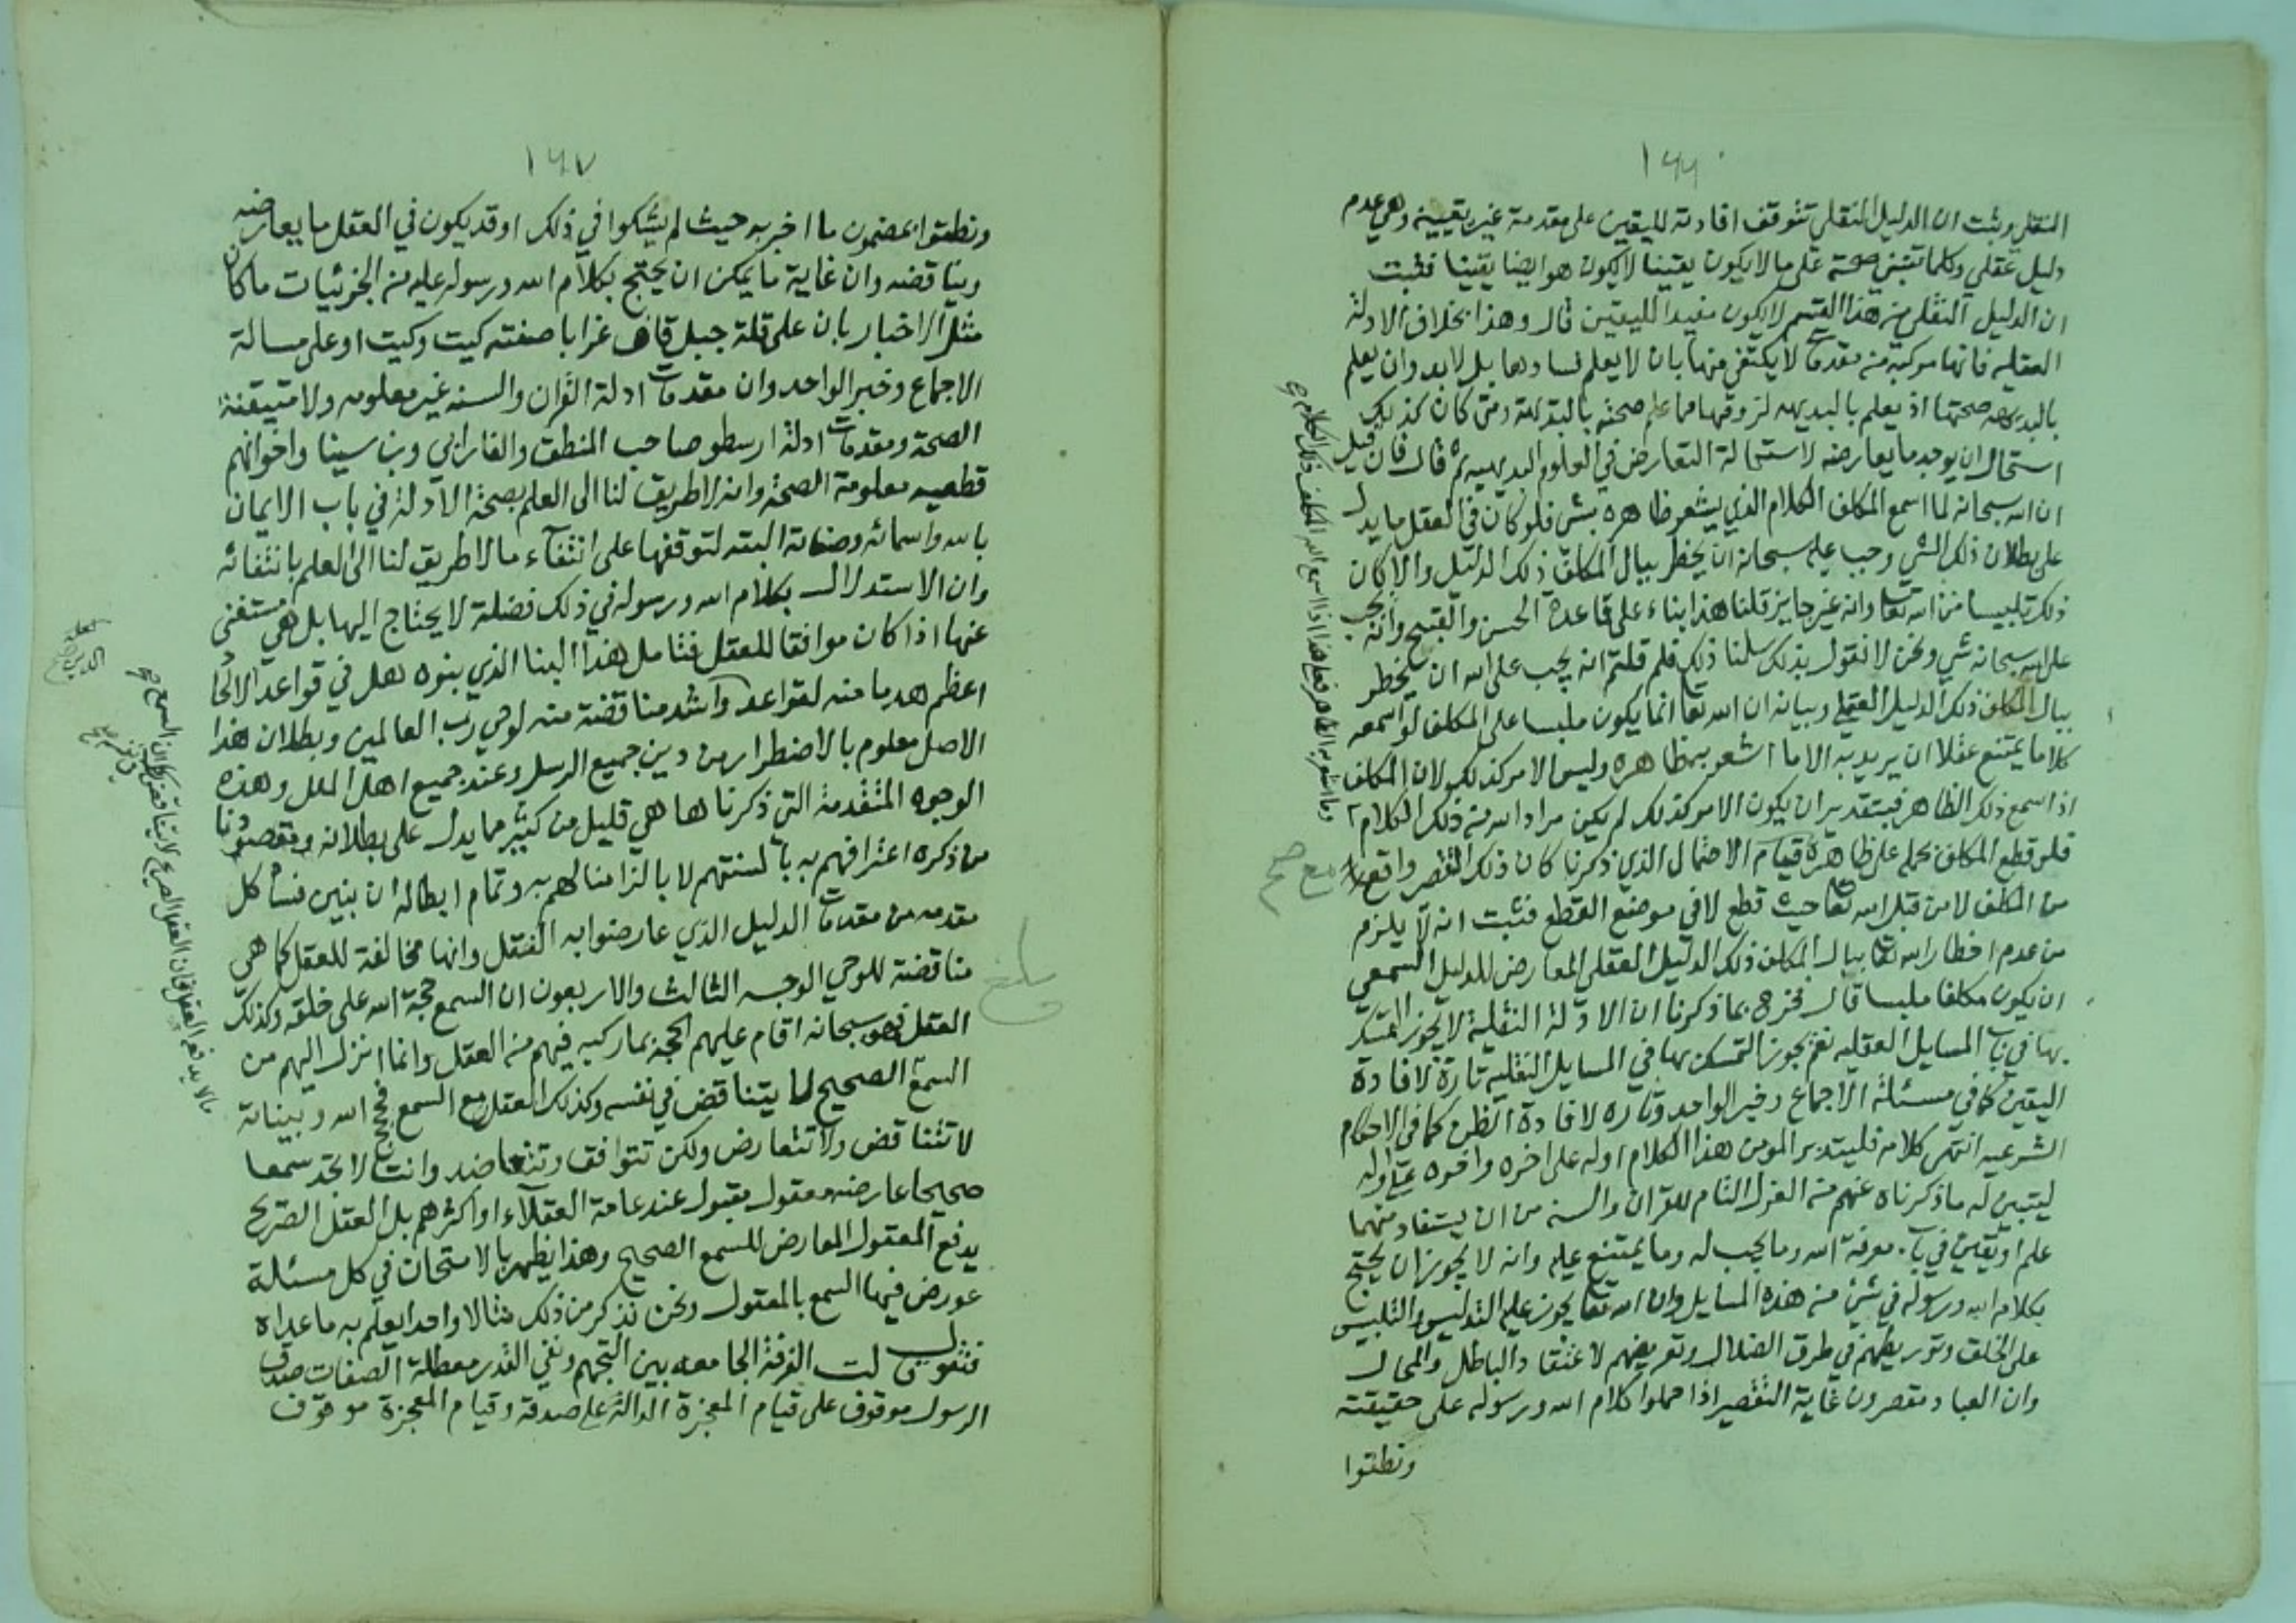 ١٦٦
النقلي وثبت ان الدليل النقلي تتوقف افادته لليقين على مقدمة غير يقينية وهي عدم
دليل عقلي وكلما تبتني صحته على ما لا يكون يقينا لا يكون هو ايضا يقينا فثبت
ان الدليل النقلي من هذا القسم لا يكون مفيدا لليقين قال وهذا بخلاف الادلة
العقلية فانها مركبة من مقدمات لا يكتفى منها بان لا يعلم فسادها بل لا بد وان يعلم
بالبديهه صحتها اذ يعلم بالبديهه لزومها مما علم صحته بالبديهة ومتى كان كذلك
استحال ان يوجد ما يعارضه لاستحالة التعارض في العلوم البديهيه ثم قال فان قيل
ان الله سبحانه لما اسمع المكلف الكلام الذي يشعر ظاهره بشي فلو كان في العقل ما يدل
على بطلان ذلك الشي وجب عليه سبحانه ان يخطر ببال المكلف ذلك الدليل والا كان
ذلك تلبيسا من الله تعا وانه غير جايز قلنا هذا بناء على قاعدة الحسن والقبح وانه يجب
على الله سبحانه شي ونحن لا نقول بذلك سلمنا ذلك فلم قلتم انه يجب على الله ان يخطر
ببال المكلف ذلك الدليل العقلي وبيانه ان الله تعا انما يكون ملبسا على المكلف لو اسمعه
كلاما يمتنع عقلا ان يريد به الا ما اشعر به ظاهره وليس الامر كذلك لان المكلف
اذا سمع ذلك الظاهر فبتقدير ان يكون الامر كذلك لم يكن مراد الله من ذلك الكلام
فلو قطع المكلف بحمله على ظاهره قيام الاحتمال الذي ذكرنا كان ذلك التقصير واقعا
من المكلف لا من قبل الله تعا حيث قطع لا في موضع القطع فثبت انه لا يلزم
من عدم اخطار الله تعا ببال المكلف ذلك الدليل العقلي المعارض للدليل السمعي
ان يكون مكلفا ملبسا قال فخرج بما ذكرنا ان الادلة النقلية لا يجوز التمسك
بها في باب المسايل العقليه نعم يجوز التمسك بها في المسايل النقليه تارة لافادة
اليقين كما في مسئلة الاجماع وخبر الواحد وتارة لافادة الظن كما في الاحكام
الشرعيه انتهى كلامه فليتدبر المومن هذا الكلام اوله على اخره واخره على اوله
ليتبين له ما ذكرناه عنهم من العزل التام للقران والسنة من ان يستفاد منهما
علم او يقين في باب معرفة الله وما يجب له وما يمتنع عليه وانه لا يجوز ان يحتج
بكلام الله ورسوله في شئ من هذه المسايل وان الله تعا يجوز عليه التدليس والتلبيس
على الخلق وتوريطهم في طرق الضلال وتعريضهم لاعتقاد الباطل والمحال
وان العباد مقصرون غاية التقصير اذا حملوا كلام الله ورسوله على حقيقته
وقطعوا
مع صح
١٦٧
وقطعوا بمضمون ما اخبر به حيث لم يشكوا في ذلك او قد يكون في العقل ما يعارضه
ويناقضه وان غاية ما يمكن ان يحتج بكلام الله ورسوله عليه من الجزئيات ما كان
مثل الاخبار بان على قلة جبل قاف غرابا صفته كيت وكيت او على مسالة
الاجماع وخبر الواحد وان مقدمات ادلة القران والسنه غير معلومه ولا متيقنة
الصحة ومقدمات ادلة ارسطو صاحب المنطق والفارابي وبن سينا واخوانهم
قطعيه معلومة الصحة وانه لا طريق لنا الى العلم بصحة الادلة في باب الايمان
بالله واسمائه وصفاته البته لتوقفها على انتفاء ما لا طريق لنا الى العلم بانتفائه
وان الاستدلال بكلام الله ورسوله في ذلك فضلة لا يحتاج اليها بل هي مستغنى
عنها اذا كان موافقا للعقل فتامل هذا البنا الذي بنوه هل في قواعد الالحاد
اعظم هدما منه لقواعد واشد مناقضة منه لوحي رب العالمين وبطلان هذا
الاصل معلوم بالاضطرار من دين جميع الرسل وعند جميع اهل الملل وهذه
الوجوه المتقدمة التي ذكرناها هي قليل من كثير مما يدل على بطلانه ومقصودنا
من ذكره اعترافهم به بالسنتهم لا بالزامنا لهم به وتمام ابطاله ان نبين فساد كل
مقدمه من مقدمات الدليل الذي عارضوا به النقل وانها مخالفة للعقل كما هي
مناقضة للوحي الوجه الثالث والاربعون ان السمع حجة الله على خلقه وكذلك
العقل فهو سبحانه اقام عليهم الحجة بما ركبه فيهم من العقل وانما انزل اليهم من
السمع الصحيح لا يتناقض في نفسه وكذلك العقل مع السمع فحجج الله وبيناته
لا تتناقض ولا تتعارض ولكن تتوافق وتتعاضد وانت لا تجد سمعا
صحيحا عارضه معقول مقبول عند عامة العقلاء او اكثرهم بل العقل الصريح
يدفع المعقول المعارض للسمع الصحيح وهذا يظهر بالامتحان في كل مسئلة
عورض فيها السمع بالمعقول ونحن نذكر من ذلك مثالا واحدا يعلم به ما عداه
فنقول قالت الفرقة الجامعه بين التجهم ونفي القدر معطلة الصفات صدق
الرسول موقوف على قيام المعجزة الدالة على صدقه وقيام المعجزة موقوف